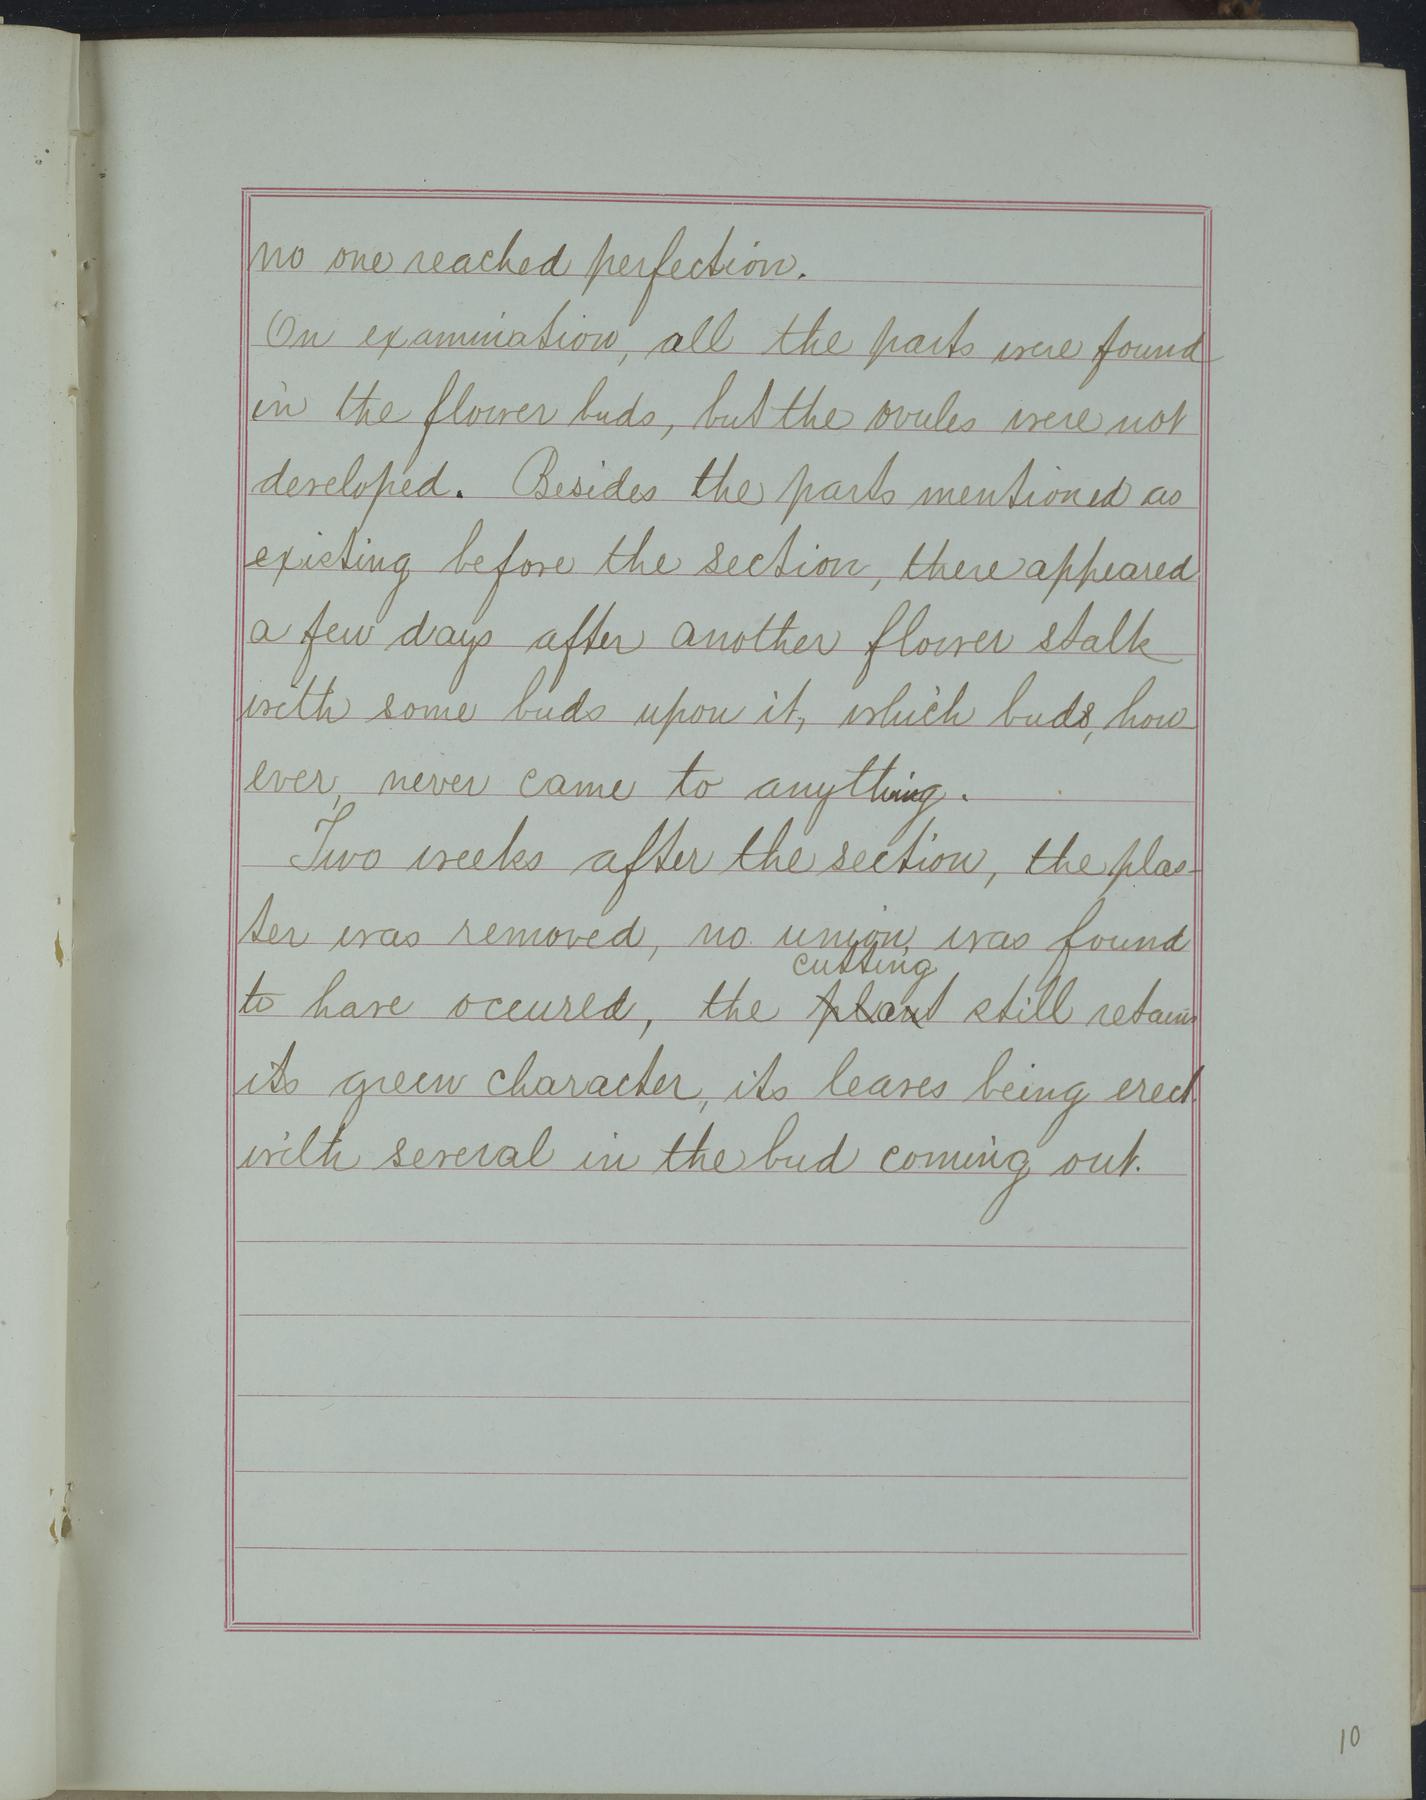 no one reached perfection.
On examination, all the parts were found
in the flower buds, but the ovules were not
developed. Besides the parts mentioned as
existing before the section, there appeared
a few days after another flower stalk
with some buds upon it, which buds, how
ever, never came to anything.
Two weeks after the section, the plas-
ter was removed, no union, was found
cutting
to have occured, the plant still retains
its green character, its leaves being erect
with several in the bud coming out.
10